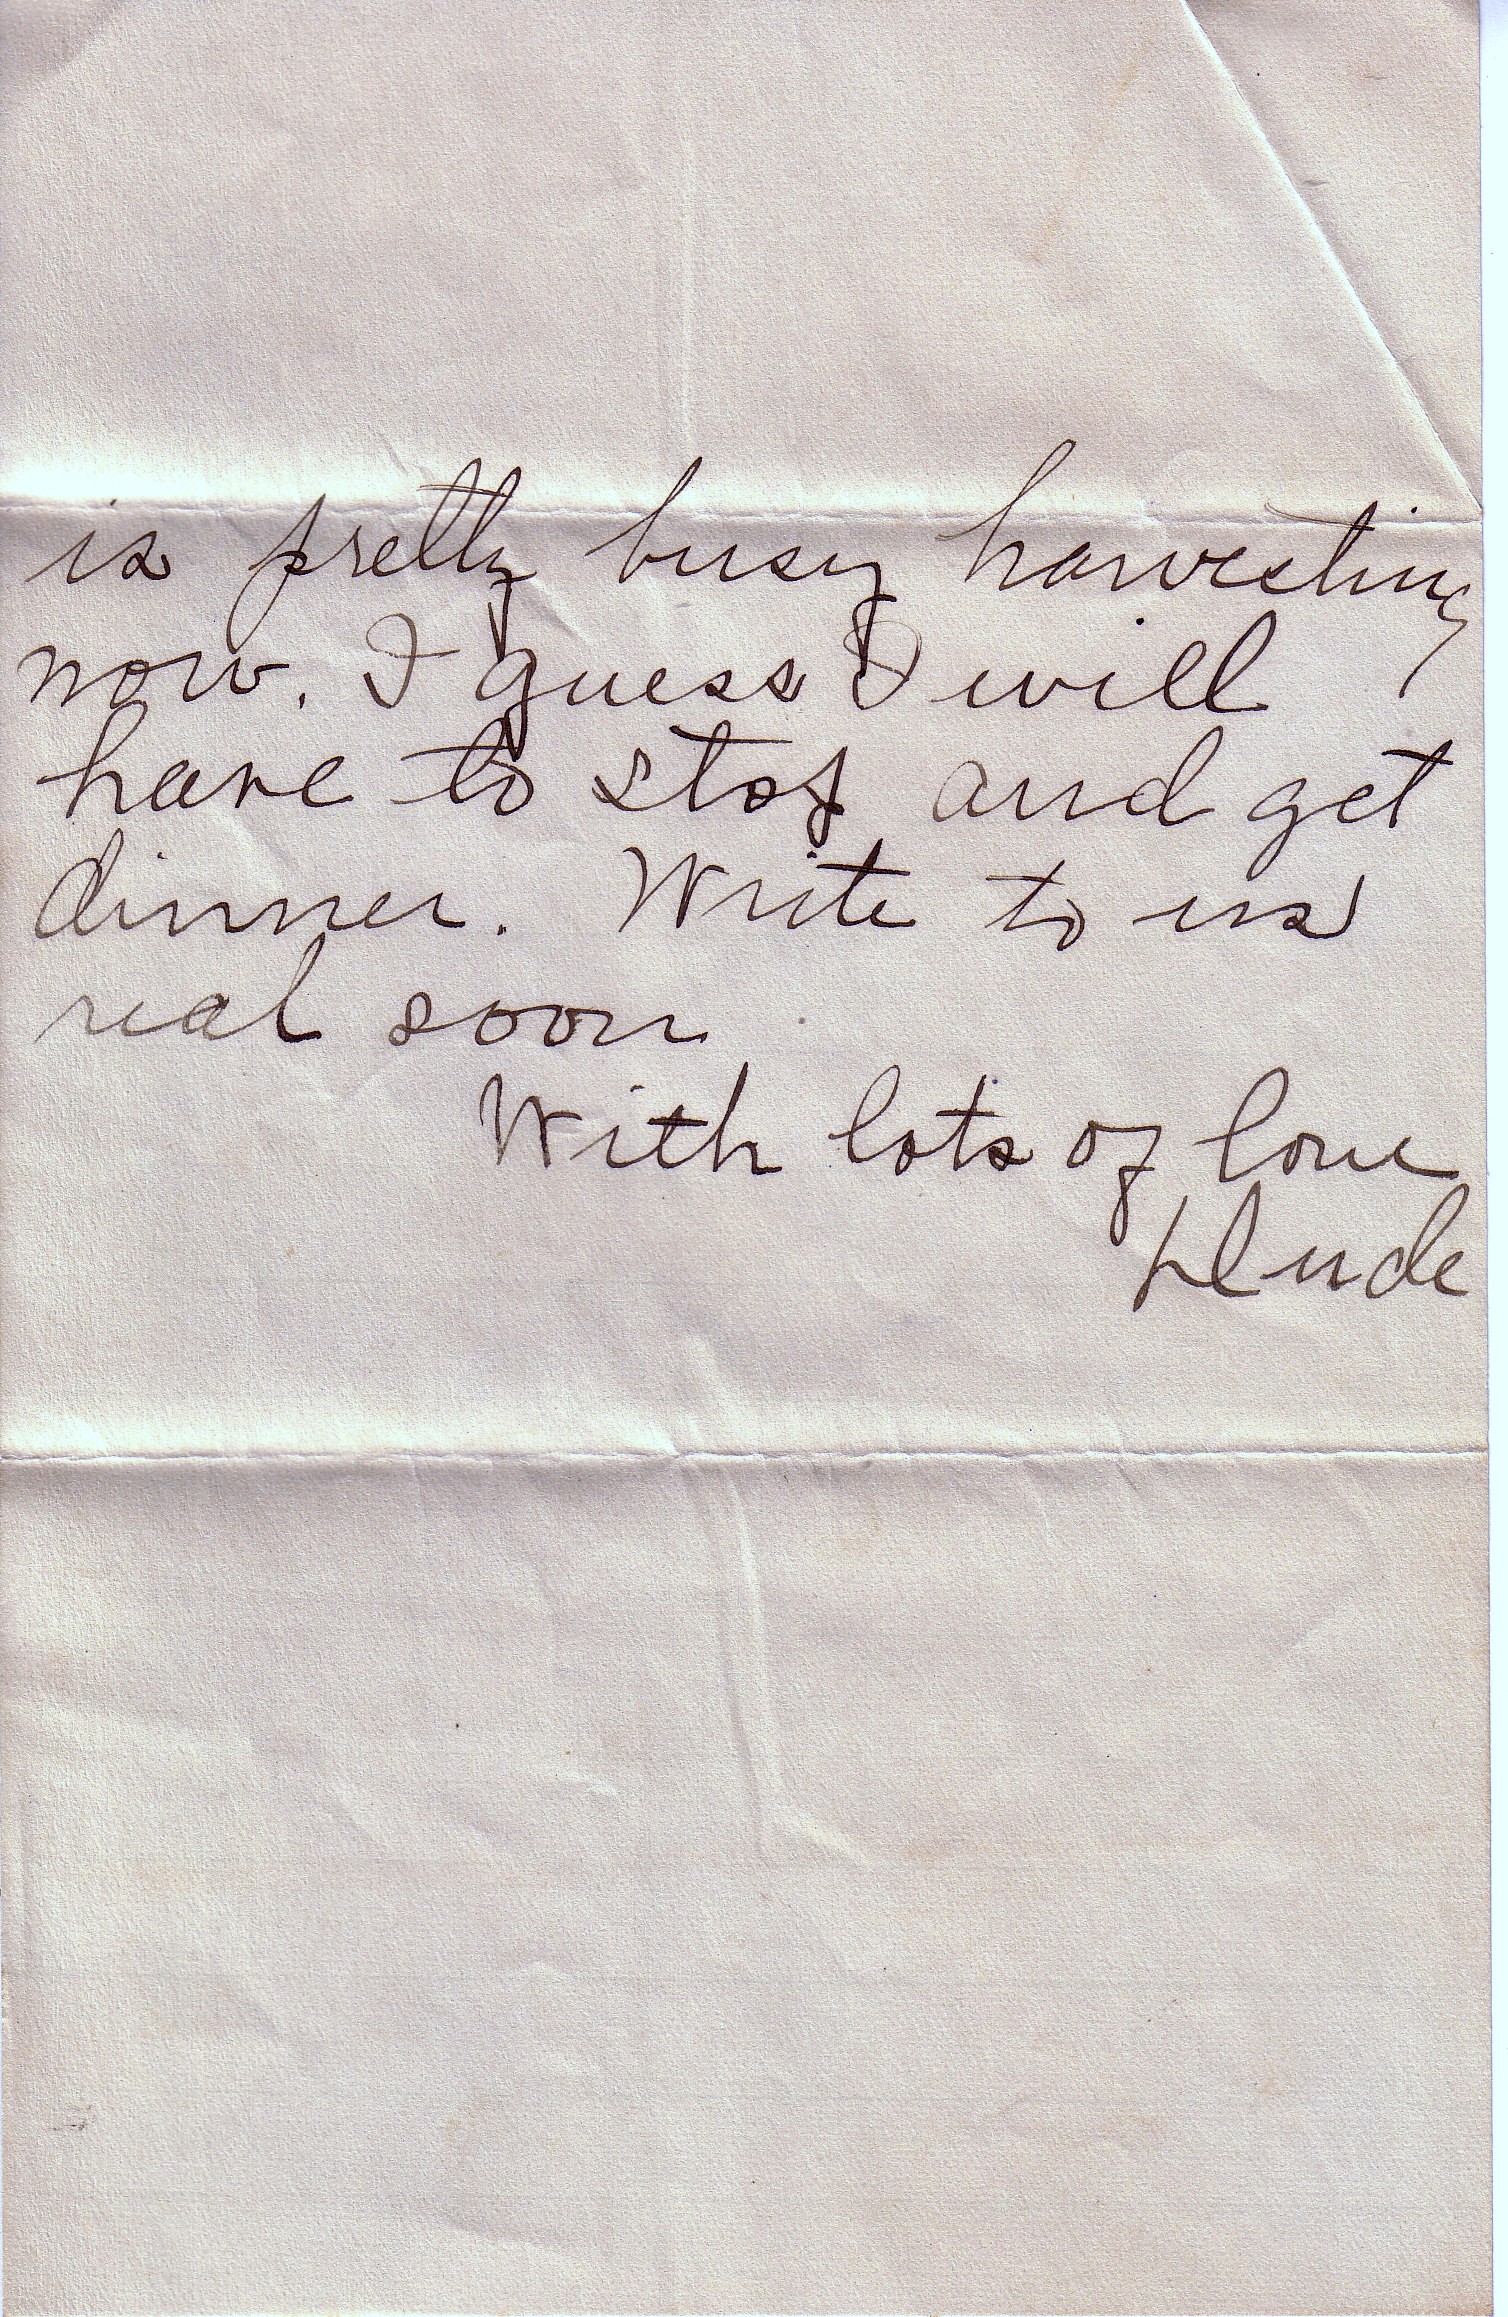 is pretty busy harvesting
now. I guess I will
have to stop and get
dinner. Write to us
real soon
With lots of love